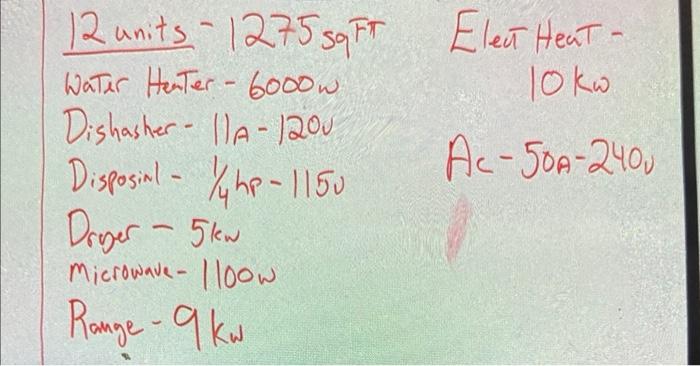 12 units - 1275 sq FT
Water Heater - 6000w
Dishasher - 11A - 120v
Disposial - 1/4 hp - 115v
Dryer - 5kw
Microwave - 1100w
Range - 9kw
Elect Heat -
10 kw
Ac - 50A - 240v